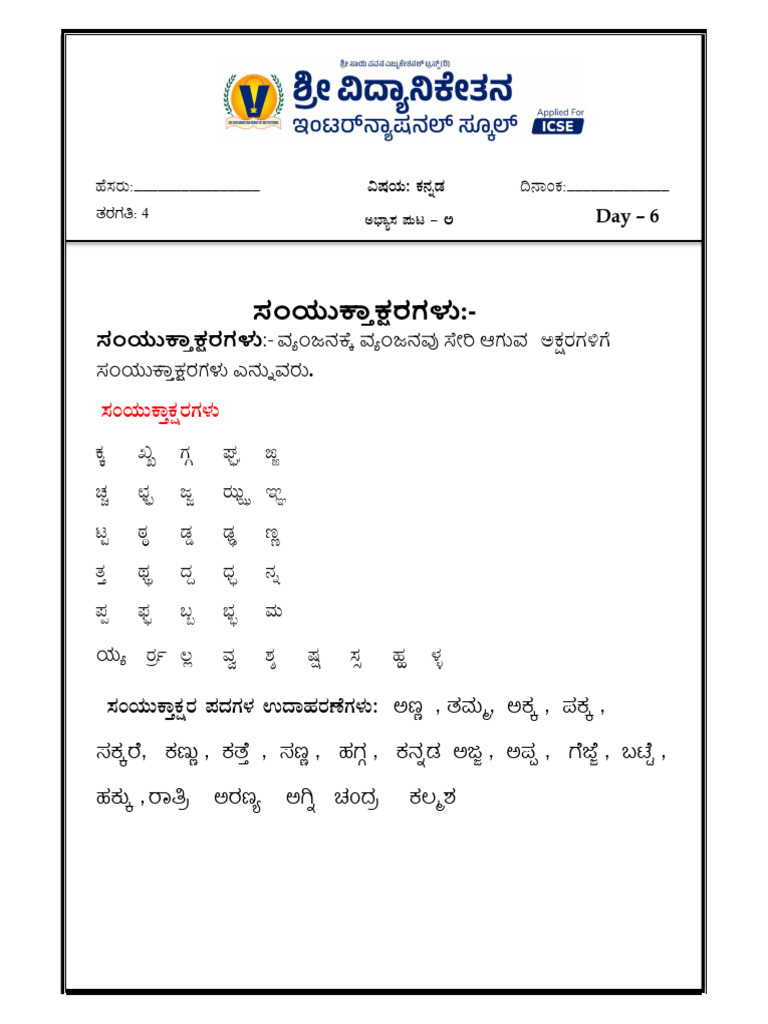 ಶ್ರೀ ಸಾಯಿ ಪವನ ಎಜ್ಯುಕೇಶನಲ್ ಟ್ರಸ್ಟ್(ರಿ)
ಶ್ರೀ ವಿದ್ಯಾನಿಕೇತನ
ಇಂಟರ್‌ನ್ಯಾಷನಲ್ ಸ್ಕೂಲ್ Applied For ICSE
ಹೆಸರು:________________ ವಿಷಯ: ಕನ್ನಡ ದಿನಾಂಕ:_____________
ತರಗತಿ: 4 ಅಭ್ಯಾಸ ಪುಟ – ೮ Day – 6
ಸಂಯುಕ್ತಾಕ್ಷರಗಳು:-
ಸಂಯುಕ್ತಾಕ್ಷರಗಳು:- ವ್ಯಂಜನಕ್ಕೆ ವ್ಯಂಜನವು ಸೇರಿ ಆಗುವ ಅಕ್ಷರಗಳಿಗೆ
ಸಂಯುಕ್ತಾಕ್ಷರಗಳು ಎನ್ನುವರು.
ಸಂಯುಕ್ತಾಕ್ಷರಗಳು
ಕ್ಕ ಖ್ಖ ಗ್ಗ ಘ್ಘ ಙ್ಙ
ಚ್ಚ ಛ್ಛ ಜ್ಜ ಝ್ಝ ಞ್ಞ
ಟ್ಟ ಠ್ಠ ಡ್ಡ ಢ್ಢ ಣ್ಣ
ತ್ತ ಥ್ಥ ದ್ದ ಧ್ಧ ನ್ನ
ಪ್ಪ ಫ್ಫ ಬ್ಬ ಭ್ಭ ಮ
ಯ್ಯ ರ್ರ ಲ್ಲ ವ್ವ ಶ್ಶ ಷ್ಷ ಸ್ಸ ಹ್ಹ ಳ್ಳ
ಸಂಯುಕ್ತಾಕ್ಷರ ಪದಗಳ ಉದಾಹರಣೆಗಳು: ಅಣ್ಣ , ತಮ್ಮ, ಅಕ್ಕ , ಪಕ್ಕ ,
ಸಕ್ಕರೆ, ಕಣ್ಣು , ಕತ್ತೆ , ಸಣ್ಣ , ಹಗ್ಗ , ಕನ್ನಡ ಅಜ್ಜ , ಅಪ್ಪ , ಗೆಜ್ಜೆ , ಬಟ್ಟೆ ,
ಹಕ್ಕು , ರಾತ್ರಿ ಅರಣ್ಯ ಅಗ್ನಿ ಚಂದ್ರ ಕಲ್ಮಶ